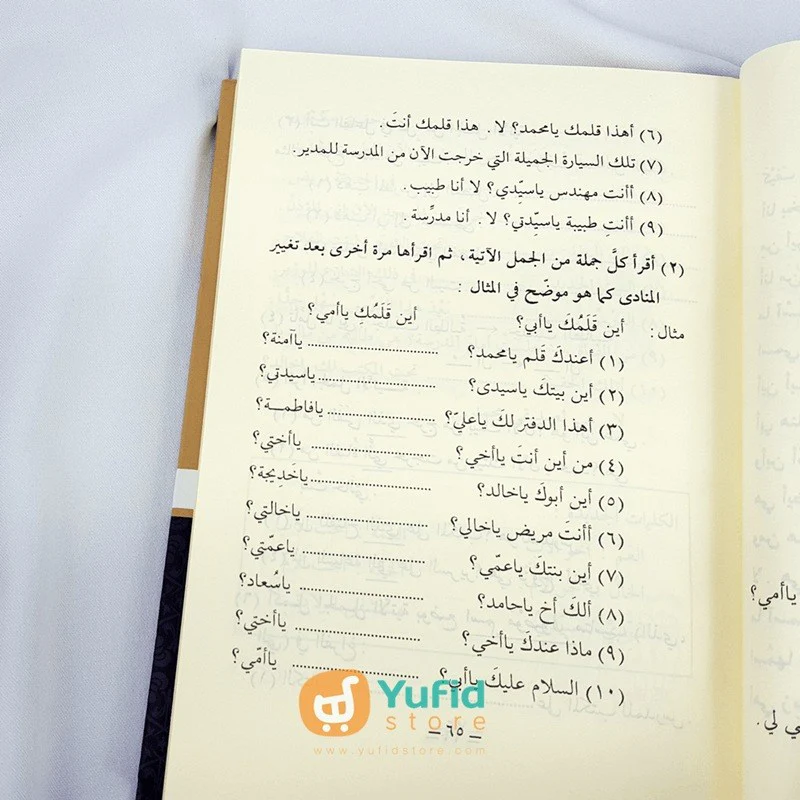 (٦) أهذا قلمك يامحمد؟ لا . هذا قلمك أنتَ.
(٧) تلك السيارة الجميلة التي خرجت الآن من المدرسة للمدير.
(٨) أأنت مهندس ياسيِّدي؟ لا أنا طبيب .
(٩) أأنتِ طبيبة ياسيِّدتي؟ لا . أنا مدرِّسة .
(٢) أقرأ كلَّ جملة من الجمل الآتية ، ثم اقرأها مرة أخرى بعد تغيير
المنادى كما هو موضّح في المثال :
مثال : أين قَلَمُكَ ياأبي؟ أين قَلَمُكِ ياأمي؟
(١) أعندكَ قلم يامحمد؟ .............................. ياآمنة؟
(٢) أين بيتكَ ياسيدى؟ .............................. ياسيدتي؟
(٣) أهذا الدفتر لكَ ياعليّ؟ .............................. يافاطمـــة؟
(٤) من أين أنتَ ياأخي؟ .............................. ياأختي؟
(٥) أين أبوكَ ياخالد؟ .............................. ياخَدِيجة؟
(٦) أأنتَ مريض ياخالي؟ .............................. ياخالتي؟
(٧) أين بنتكَ ياعمّي؟ .............................. ياعمّتي؟
(٨) ألكَ أخ ياحامد؟ .............................. ياسُعاد؟
(٩) ماذا عندكَ ياأخي؟ .............................. ياأختي؟
(١٠) السلام عليكَ ياأبي؟ .............................. ياأمّي؟
– ٦٥ –
Yufid
store
www.yufidstore.com
ياأمي؟